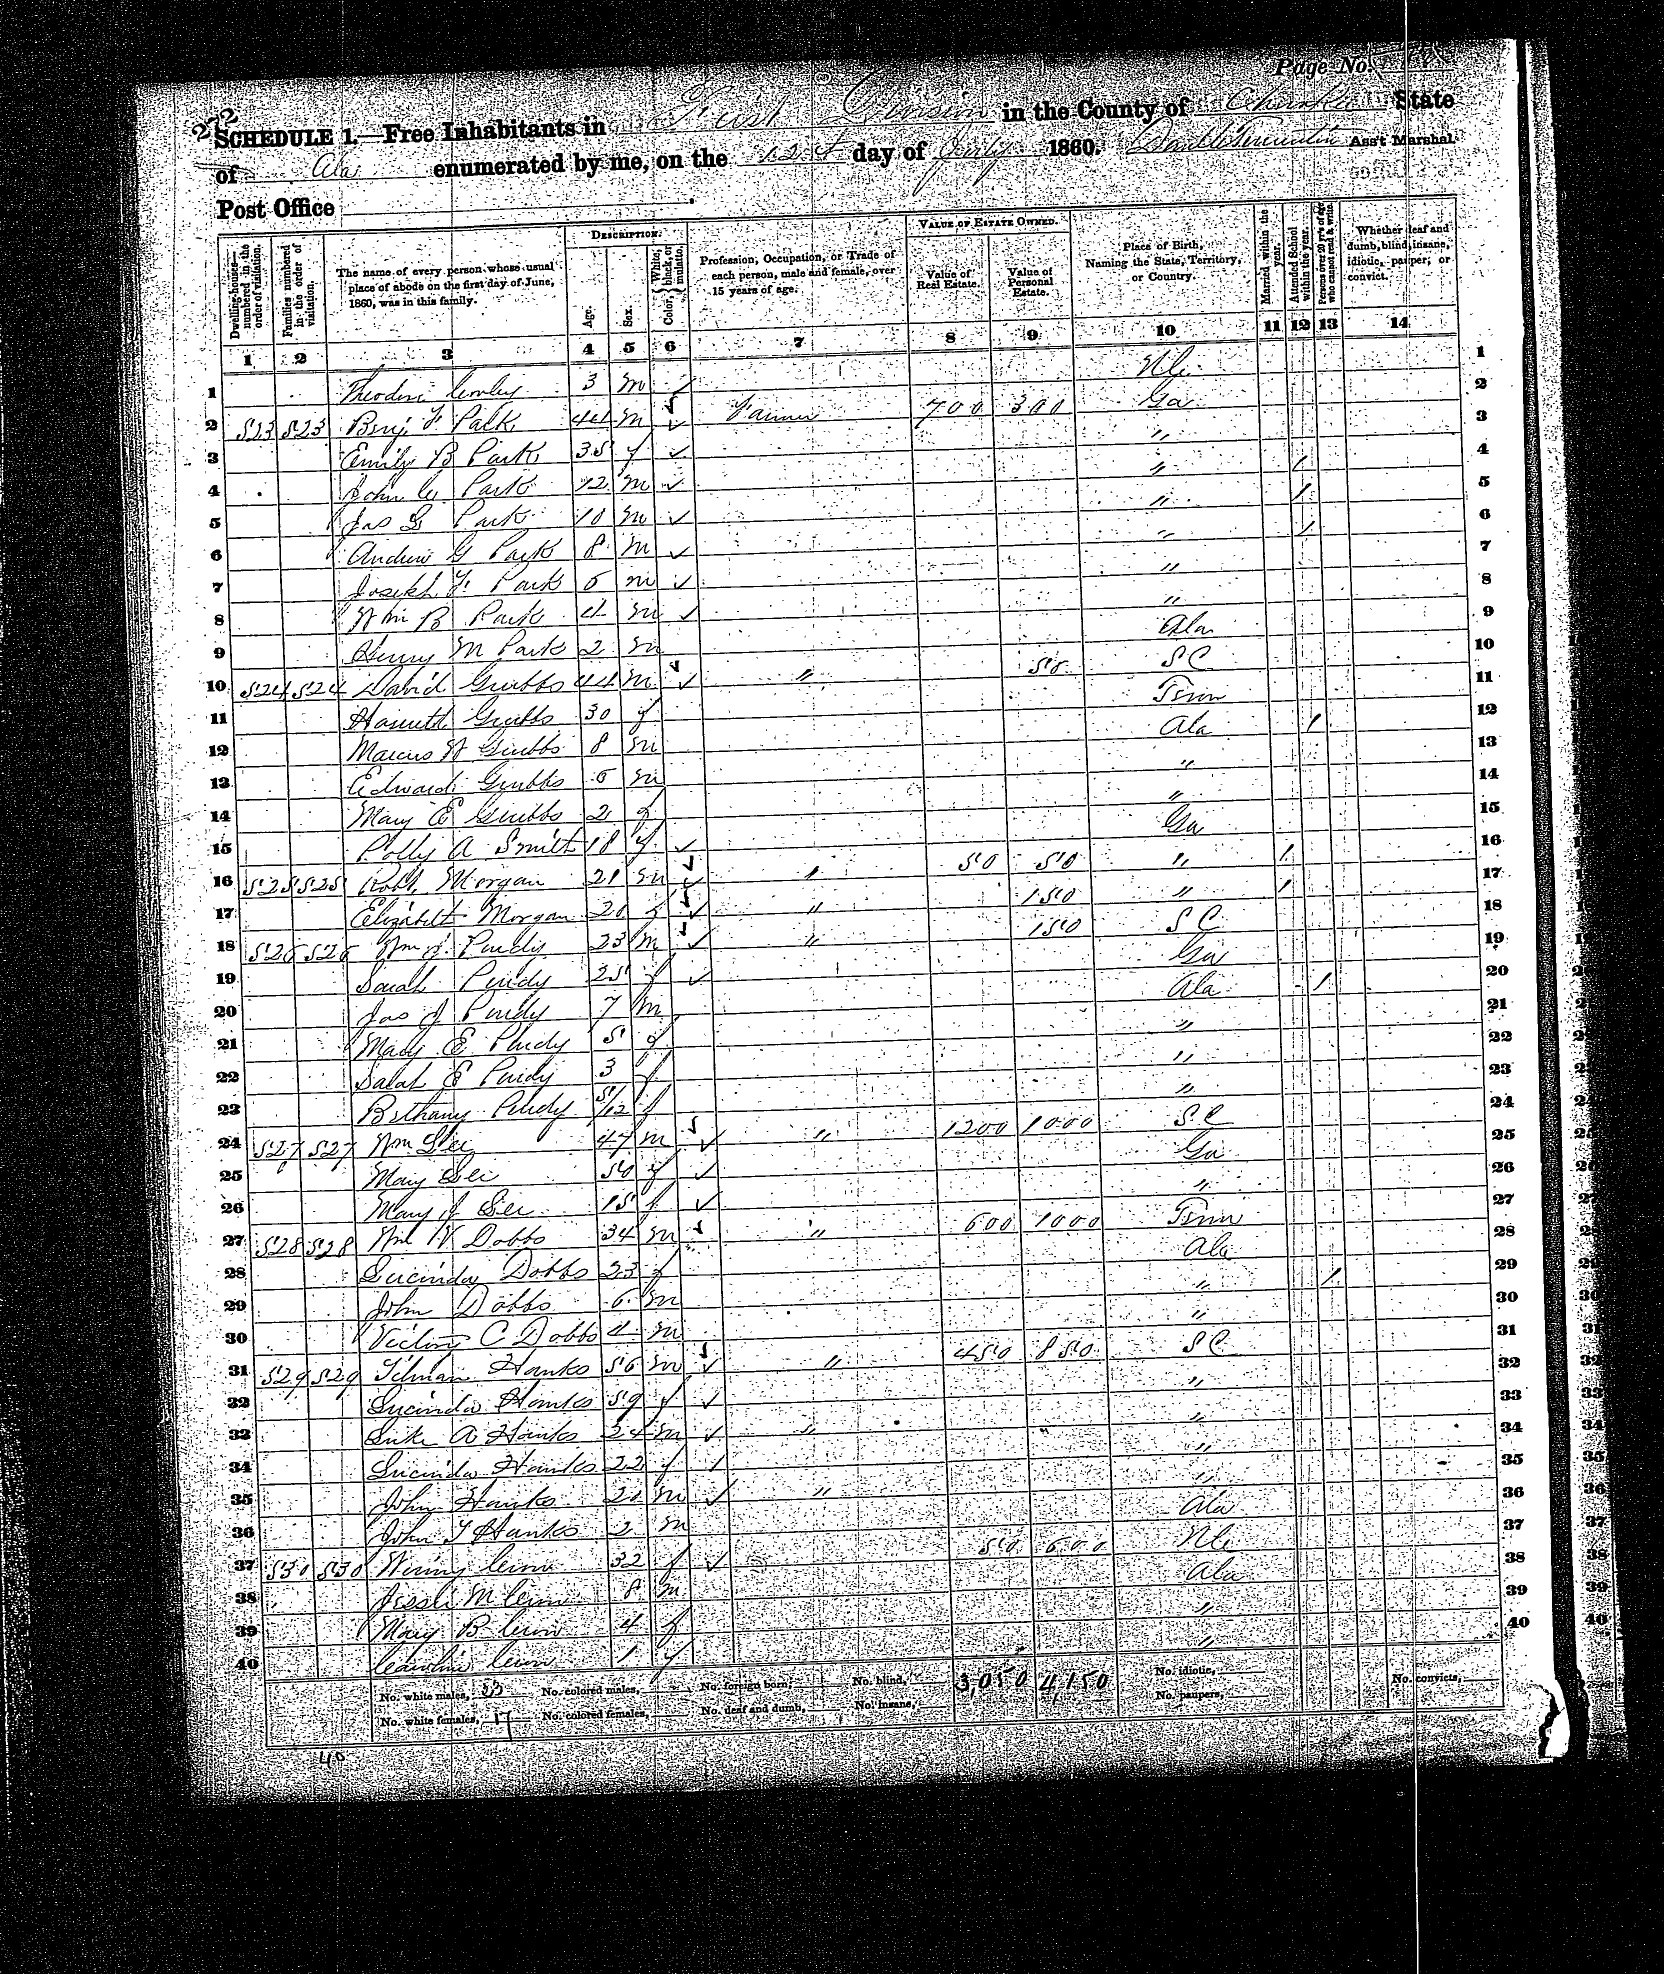 Page No.
272
SCHEDULE 1.—Free Inhabitants in East Division in the County of Cherokee State
of Ala enumerated by me, on the 12th day of July 1860. Ass't Marshal.
Post Office
Dwelling-houses—numbered in the order of visitation.
Families numbered in the order of visitation.
The name of every person whose usual place of abode on the first day of June, 1860, was in this family.
DESCRIPTION.
Age.
Sex.
Color, White, black, or mulatto.
Profession, Occupation, or Trade of each person, male and female, over 15 years of age.
VALUE OF ESTATE OWNED.
Value of Real Estate.
Value of Personal Estate.
Place of Birth, Naming the State, Territory, or Country.
Married within the year.
Attended School within the year.
Persons over 20 y'rs of age who cannot read & write.
Whether deaf and dumb, blind, insane, idiotic, pauper, or convict.
1 2 3 4 5 6 7 8 9 10 11 12 13 14
1 Theodore 3 m NC 1
2 523 523 Benj F Park 44 m Farmer 700 300 Ga 2
3 Emily B Park 35 f " 3
4 John W Park 12 m " / 4
5 Jas L Park 10 m " / 5
6 Andrew G Park 8 m " / 6
7 Joseph F Park 6 m " 7
8 Wm B Park 4 m " 8
9 Henry M Park 2 m Ala 9
10 524 524 David Grubbs 44 m " 50 SC 10
11 Grubbs 30 f Tenn 11
12 Marcus W Grubbs 8 m Ala / 12
13 Edward Grubbs 6 m " 13
14 Mary E Grubbs 2 f " 14
15 Polly A Smith 18 f Ga 15
16 525 525 Robt Morgan 21 m " 50 50 " / 16
17 Elizabeth Morgan 20 f " 150 " / 17
18 526 526 Wm J Purdy 23 m " 150 SC 18
19 Sarah Purdy 25 f Ga 19
20 Jas J Purdy 7 m Ala / 20
21 Mary E Purdy 5 f " 21
22 Sarah E Purdy 3 f " 22
23 Bethany Purdy 5/12 f " 23
24 527 527 Wm Lee 47 m " 1200 1000 SC 24
25 Mary Lee 50 f Ga 25
26 Mary J Lee 15 f " 26
27 528 528 Wm N Dobbs 34 m " 600 1000 Tenn 27
28 Lucinda Dobbs 23 f Ala 28
29 John Dobbs 6 m " / 29
30 Victory C Dobbs 4 m " 30
31 529 529 Tilman Hanks 56 m " 450 850 SC 31
32 Lucinda Hanks 59 f " 32
32 Luke A Hanks 24 m " " 33
34 Lucinda Hanks 22 f " 34
35 John Hanks 20 m " " 35
36 John T Hanks 2 m Ala 36
37 530 530 Winny 32 f 50 600 NC 37
38 Jessie M 8 m Ala 38
39 Mary B 4 f " 39
40 Caroline 1 f " 40
No. white males, 23 No. colored males, No. foreign born, No. blind, 3,050 4,150 No. idiotic, No. convicts,
No. white females, 17 No. colored females, No. deaf and dumb, No. insane, No. paupers,
40